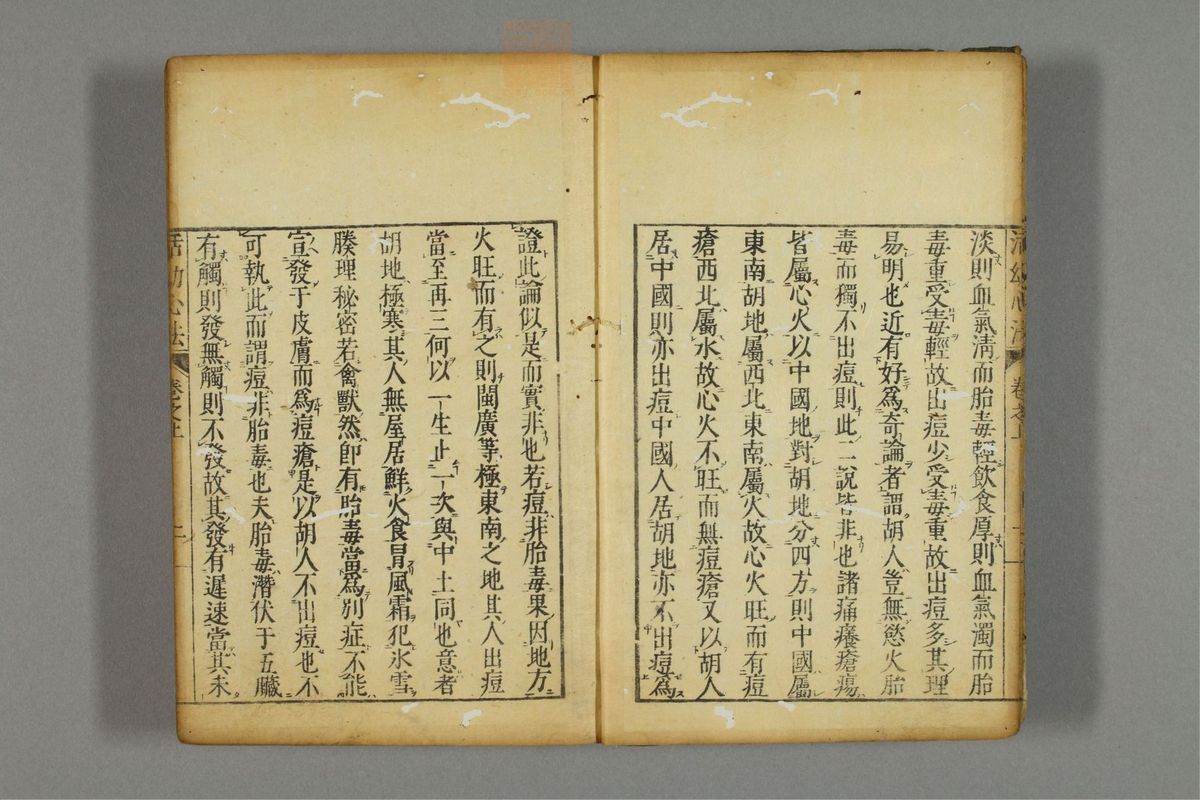 淡則血氣清而胎毒輕飲食厚則血氣濁而胎
毒重受毒輕故出痘少受毒重故出痘多其理
易明也近有好爲奇論者謂胡人豈無慾火胎
毒而獨不出痘則此二說皆非也諸痛癢瘡瘍
皆屬心火以中國地對胡地分四方則中國屬
東南胡地屬西北東南屬火故心火旺而有痘
瘡西北屬水故心火不旺而無痘瘡又以胡人
居中國則亦出痘中國人居胡地亦不出痘爲
活幼心法 卷之上
證此論似是而實非也若痘非胎毒果因地方
火旺而有之則閩廣等極東南之地其人出痘
當至再三何以一生止一次與中土同也意者
胡地極寒其人無屋居鮮火食冒風霜犯氷雪
腠理秘密若禽獸然卽有胎毒當爲別症不能
宣發于皮膚而爲痘瘡是以胡人不出痘也不
可執此而謂痘非胎毒也夫胎毒潛伏于五臟
有觸則發無觸則不發故其發有遲速當其未
活幼心法 卷之上